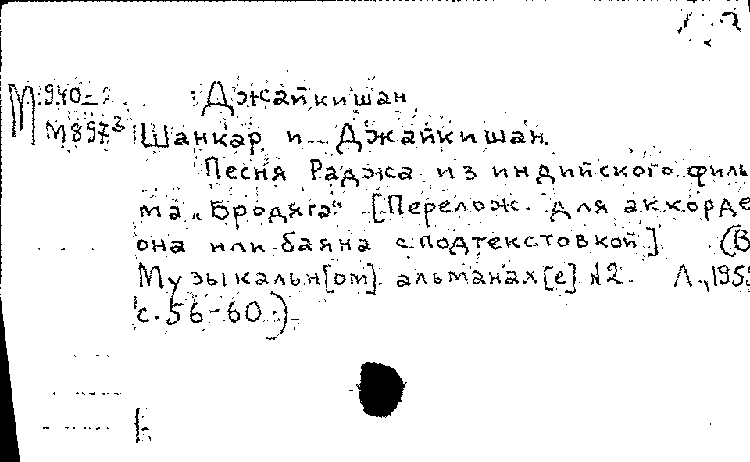 М 940-2 Джайкишан
М 897³ Шанкар и Джайкишан.
Песня Раджа из индийского филь
ма „Бродяга“ [Перелож. для аккорде
она или баяна с подтекстовкой] (В
Музыкальн[ом] альманах[е] №2. Л., 195
с. 56-60.)